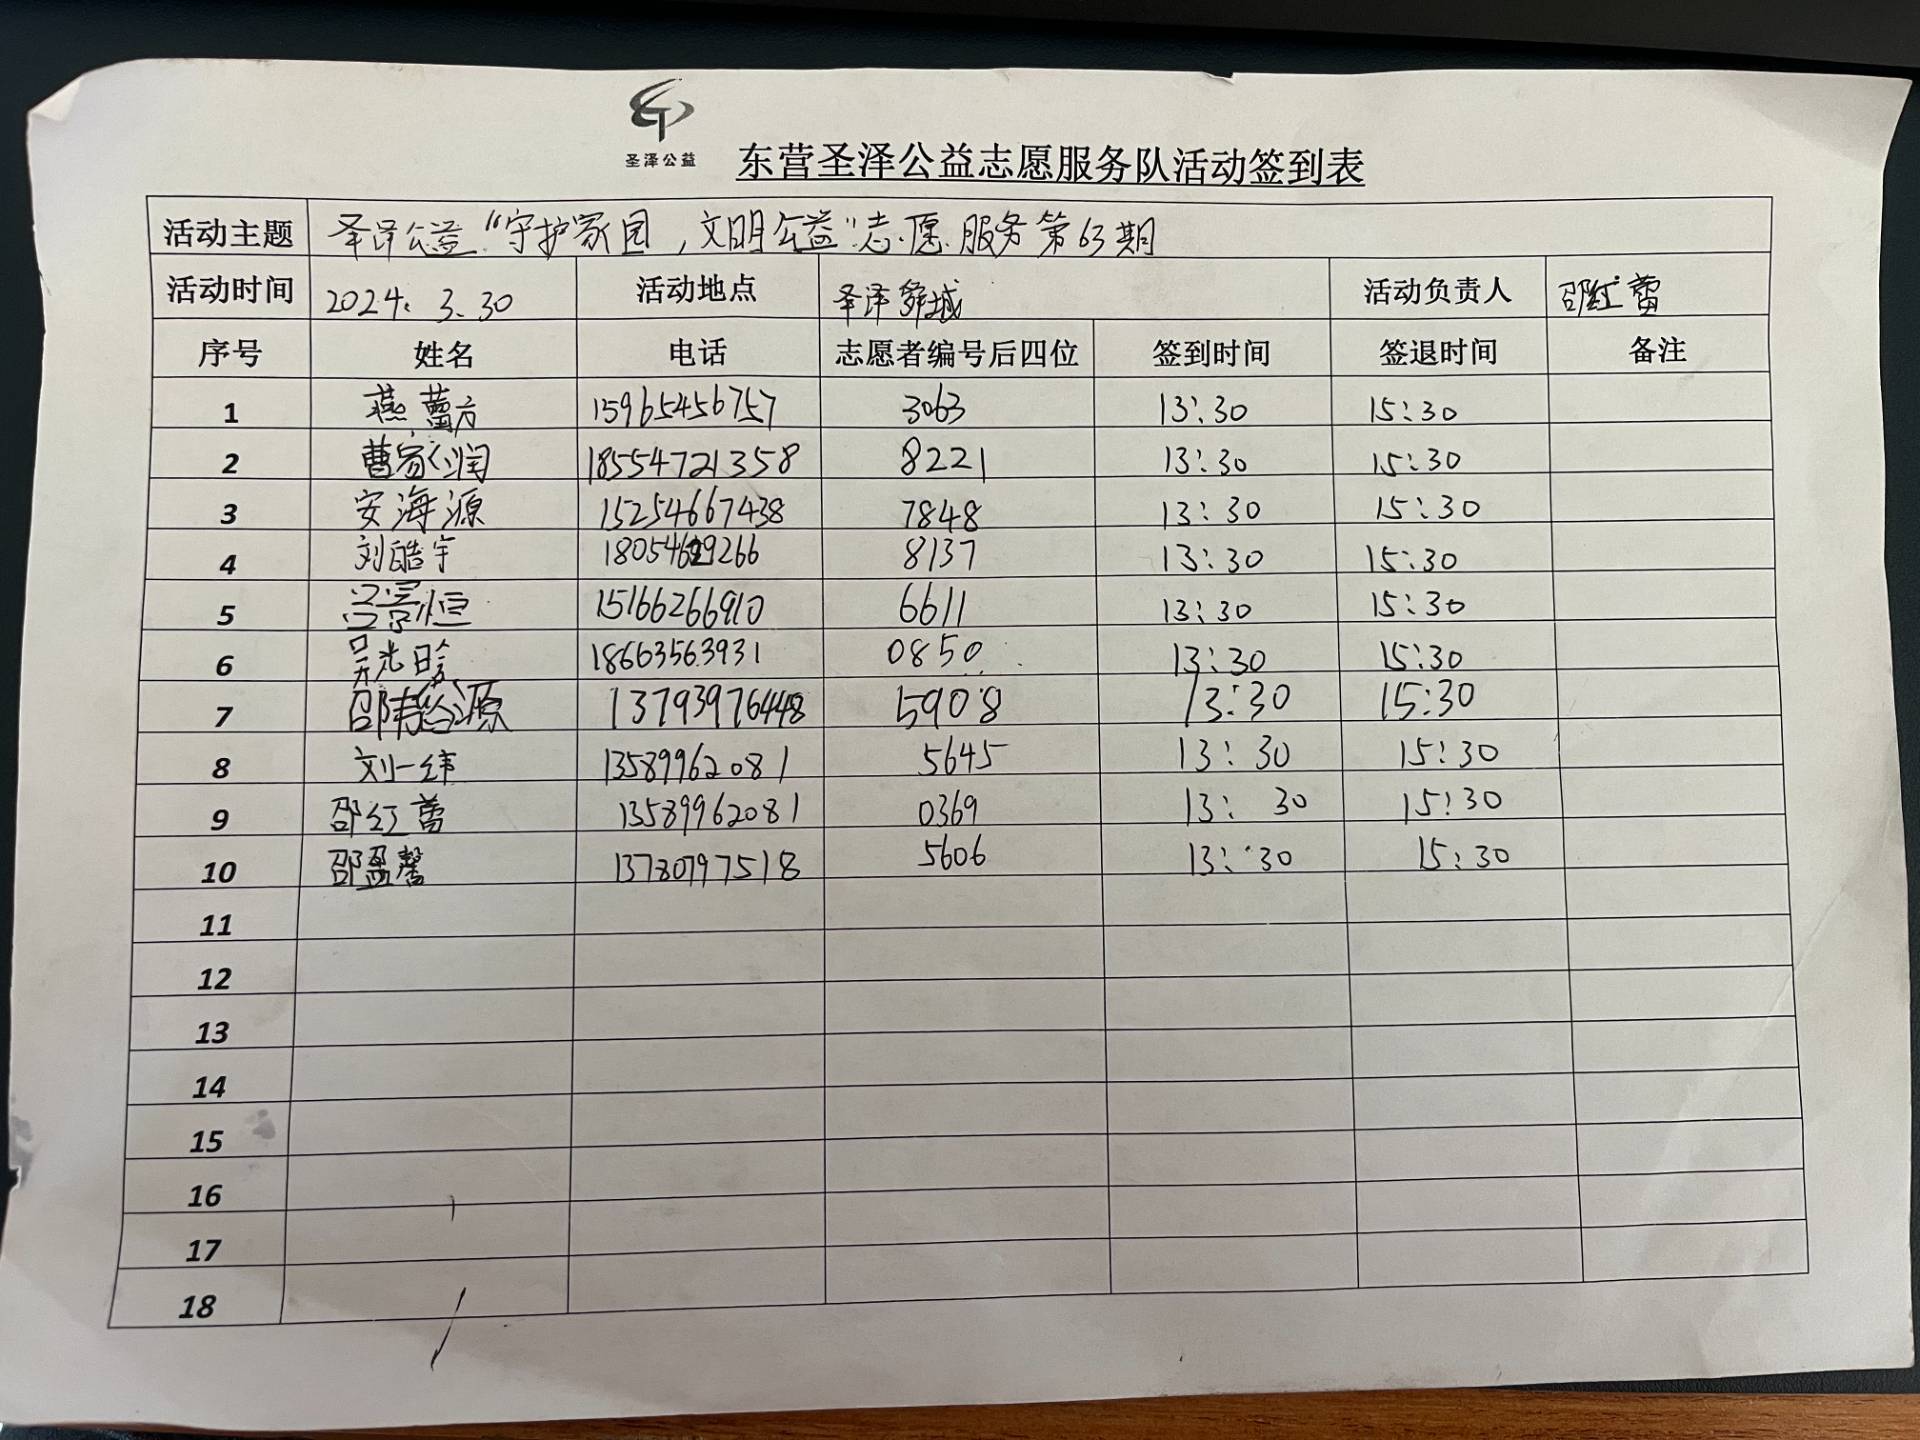 圣泽公益
东营圣泽公益志愿服务队活动签到表
活动主题 圣泽公益“守护家园，文明公益”志愿服务第63期
活动时间 2024.3.30 活动地点 圣泽舜城 活动负责人 邵红蕾
序号 姓名 电话 志愿者编号后四位 签到时间 签退时间 备注
1 燕蕾方 15965456757 3063 13:30 15:30
2 曹家润 18554721358 8221 13:30 15:30
3 安海源 15254667438 7848 13:30 15:30
4 刘皓宇 8137 13:30 15:30
5 吕景恒 15166266910 6611 13:30 15:30
6 吴光晗 18663563931 0850 13:30 15:30
7 13793976448 5908 13:30 15:30
8 刘一纬 13589962081 5645 13:30 15:30
9 邵红蕾 13589962081 0369 13:30 15:30
10 邵盈馨 13780797518 5606 13:30 15:30
11
12
13
14
15
16
17
18